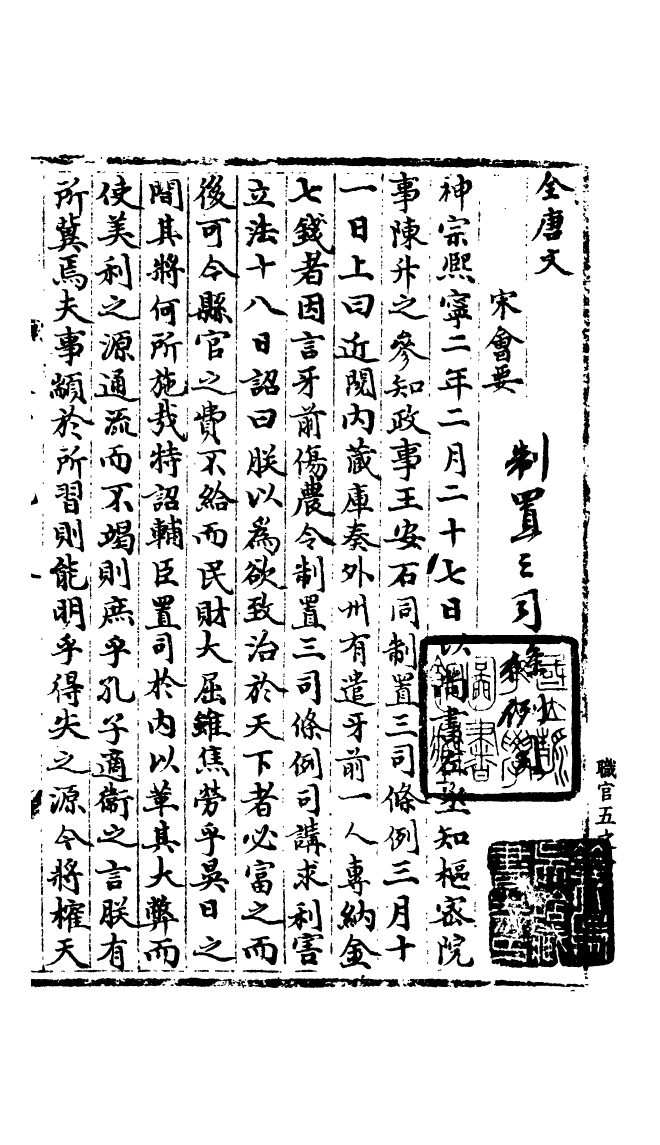 全唐文
宋會要
制置三司條例司
神宗熙寧二年二月二十七日以尚書左丞知樞密院
事陳升之參知政事王安石同制置三司條例三月十
一日上曰近閱内藏庫奏外州有遣牙前一人專納金
七錢者因言牙前傷農令制置三司條例司講求利害
立法十八日詔曰朕以為欲致治於天下者必富之而
後可今縣官之費不給而民財大屈雖焦勞乎昃日之
間其將何所施哉特詔輔臣置司於内以革其大弊而
使美利之源通流而不竭則庶乎孔子適衞之言朕有
所冀焉夫事顓於所習則能明乎得失之源今將榷天
職官五之